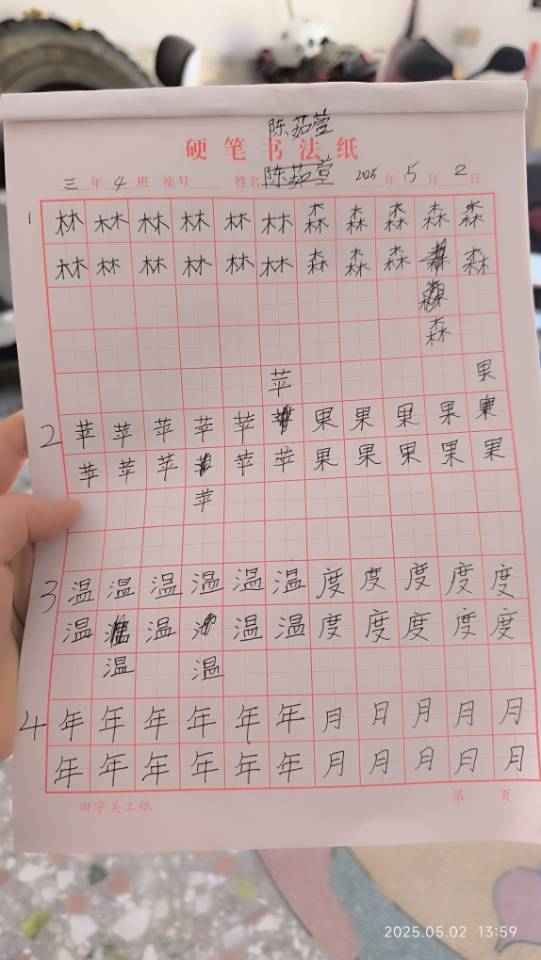 陈茹萱
硬笔书法纸
三年4班 座号 姓名 陈茹萱 2025年5月2日
1 林林林林林林森森森森森
林林林林林林森森森森
森
苹 果
2 苹苹苹苹苹果果果果
苹苹苹苹苹果果果果果
苹
3 温温温温温温度度度度度
温温温温度度度度度
温 温
4 年年年年年年月月月月月
年年年年年年月月月月月
田字美工纸 第 页
2025.05.02 13:59